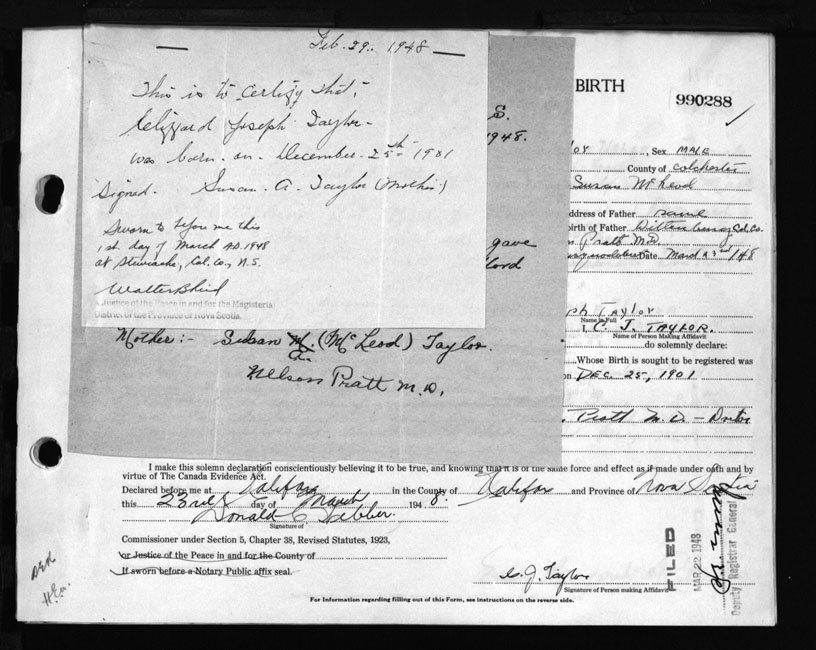 Feb. 29. 1948
This is to certify that,
Clifford Joseph Taylor
was born on December 25th 1901
Signed. Susan. A. Taylor (Mother)
Sworn to before me this
1st. day of March A.D. 1948
at Stewiacke, Col. Co., N.S.
A Justice of the Peace in and for the Magisterial
District of the Province of Nova Scotia.
S.
1948.
gave
Mother:- Susan M. (McLeod) Taylor
A.
Nelson Pratt M.D.
BIRTH
990288
lor, Sex MALE
County of Colchester
Susan McLeod
Address of Father same
birth of Father Col. Co.
Pratt M.D.
Date March 23rd 1948
ph Taylor
Name in Full
I, C. J. TAYLOR.
Name of Person Making Affidavit
do solemnly declare:
Whose Birth is sought to be registered was
on DEC. 25, 1901
Pratt M.D. - Doctor
I make this solemn declaration conscientiously believing it to be true, and knowing that it is of the same force and effect as if made under oath and by
virtue of The Canada Evidence Act.
Declared before me at Halifax in the County of Halifax and Province of Nova Scotia
this 23rd day of March 1948.
Donald C. Webber.
Signature of
Commissioner under Section 5, Chapter 38, Revised Statutes, 1923,
or Justice of the Peace in and for the County of
If sworn before a Notary Public affix seal.
C. J. Taylor
Signature of Person making Affidavit
For Information regarding filling out of this Form, see instructions on the reverse side.
FILED
MAR 22 1948
Deputy Registrar General